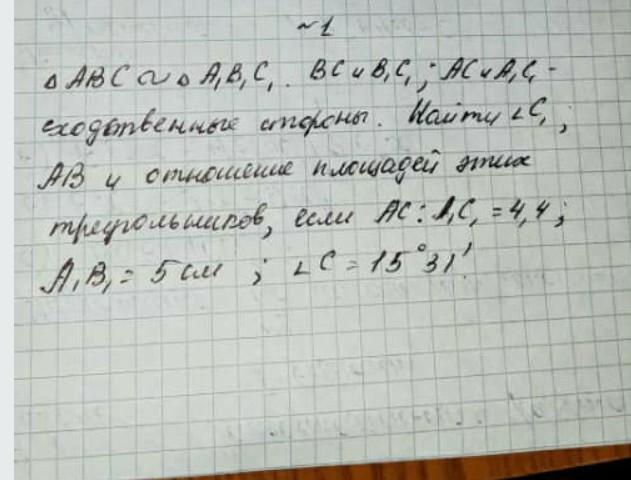 ~ 1
△ ABC ∾ △ A₁B₁C₁. BC и B₁C₁; AC и A₁C₁ -
сходственные стороны. Найти ∠C₁;
AB и отношение площадей этих
треугольников, если AC : A₁C₁ = 4,4;
A₁B₁ = 5 см ; ∠C = 15°31'